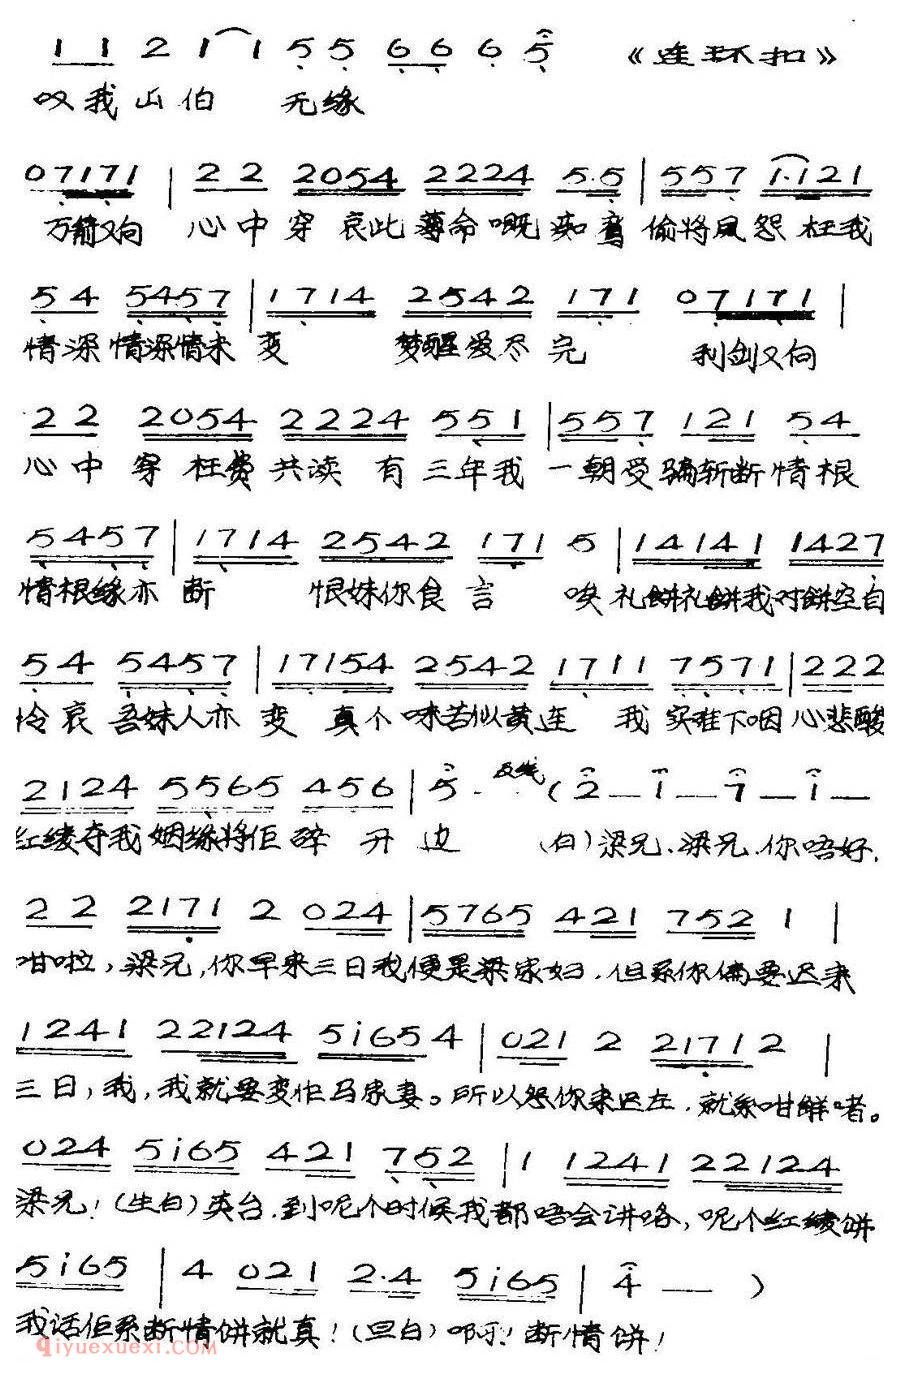 1 1 2 1 1 5 5 6 6 6 5 《连环扣》
叹我山伯 无缘
07171 | 2 2 2054 2224 5·5 | 557 1·121
万箭又向 心中穿哀此薄命嘅痴鸳偷将凤怨枉我
54 5457 | 1714 2542 171 07171 |
情深情深情未变 梦醒爱尽完 利剑又向
22 2054 2224 551 | 557 121 54
心中穿枉费共读有三年我一朝受骗斩断情根
5457 | 1714 2542 171 5 | 14141 1427
情根缘亦断 恨妹你食言 唉礼饼礼饼我对饼空自
54 5457 | 17154 2542 1711 7571 | 222
怜哀吾妹人亦变 真个味苦似黄连 我实难下咽心悲酸
2124 5565 456 | 5 - - 反线 (2 — 1 — 7 — 1 —
红绫夺我姻缘将佢碎开边 (白)梁兄、梁兄、你唔好,
22 2171 2 024 | 5765 421 752 1 |
咁啦,梁兄,你早来三日我便是梁家妇.但系你偏要迟来
1241 22124 5i654 | 021 2 21712 |
三日,我,我就要变作马家妻。所以怨你来迟左,就系咁解啫。
024 5i65 421 752 | 1 1241 22124
梁兄!(生白)英台.到呢个时候我都唔会讲咯,呢个红绫饼
5i65 | 4 021 2·4 5i65 | 4 — — )
我话佢系断情饼就真!(旦白)啊!断情饼!
qiyuexuexi.COM